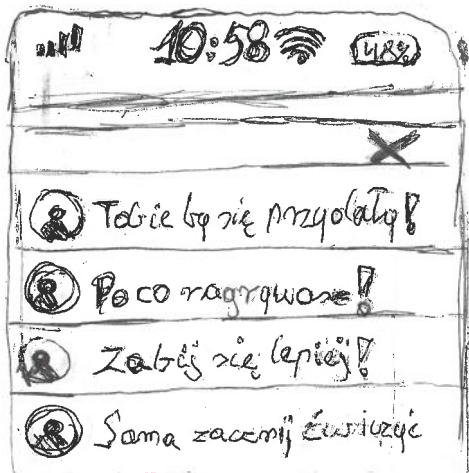 10:58 48%
Tobie by się przydały!
Po co nagrywasz!
Zabij się lepiej!
Sama zacznij ćwiczyć